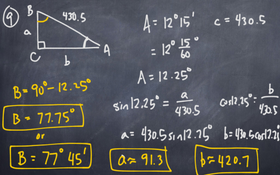 9
B 430.5
a
C b A
A = 12°15' c = 430.5
= 12° 15/60°
A = 12.25°
B = 90° - 12.25°
B = 77.75°
or
B = 77° 45'
sin 12.25° = a/430.5 cos 12.25° = b/430.5
a = 430.5 sin 12.25° b = 430.5 cos 12.2
a ≈ 91.3 b ≈ 420.7